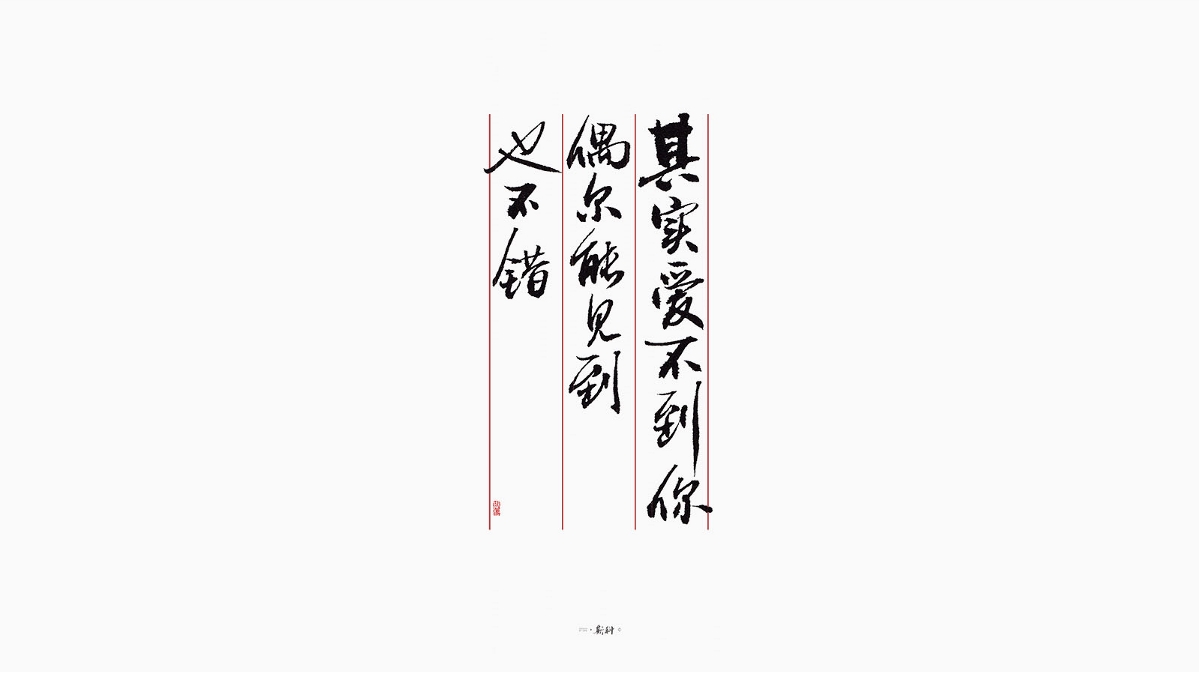 其实爱不到你
偶尔能见到
也不错